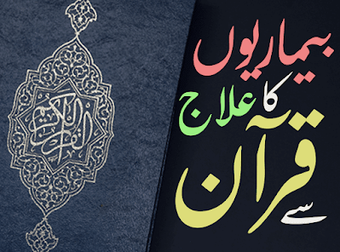 القرآن الكريم
بیماریوں
کا علاج
قرآن
سے